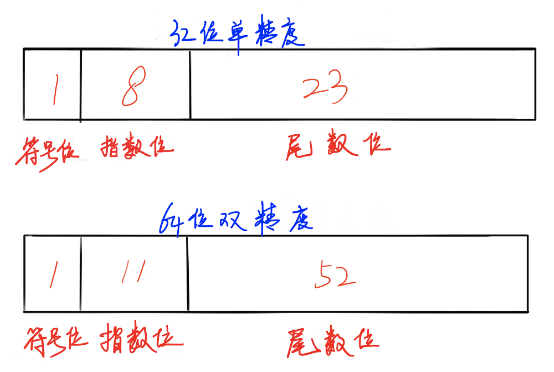 32位单精度
1 8 23
符号位 指数位 尾数位
64位双精度
1 11 52
符号位 指数位 尾数位